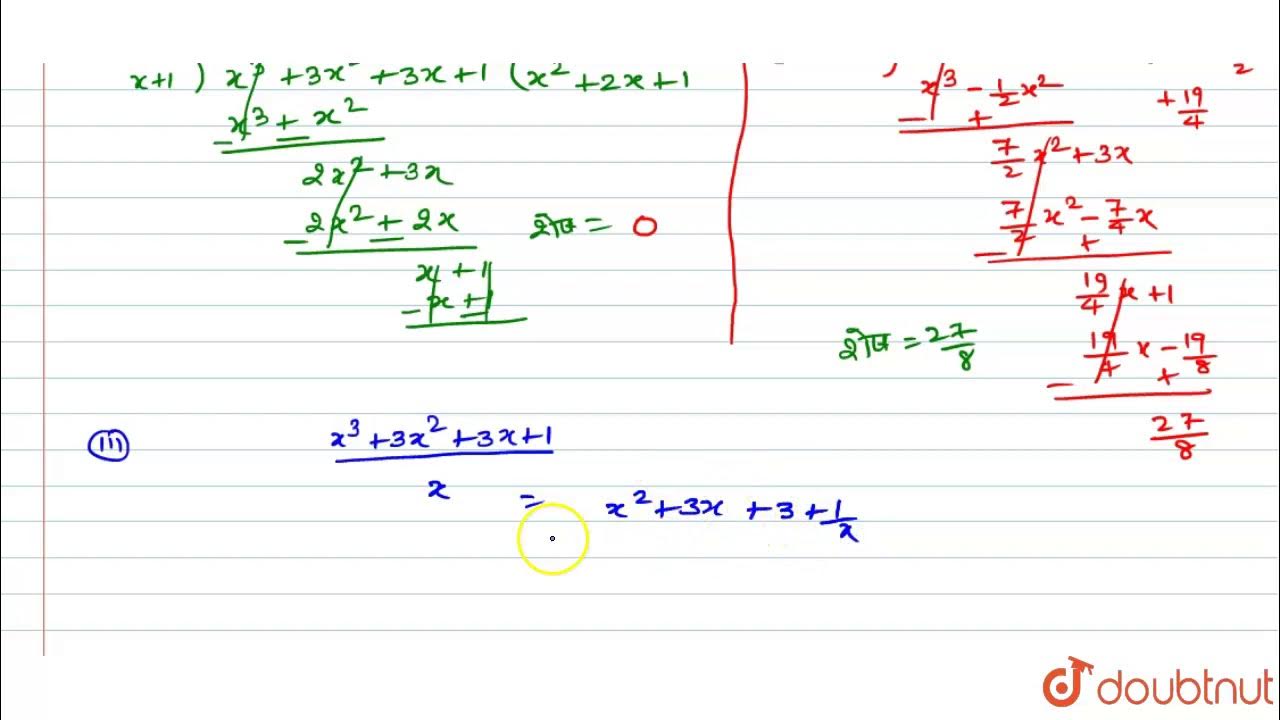 x+1 ) x³ + 3x² + 3x + 1 ( x² + 2x + 1
x³ + x²
−    −
2x² + 3x
2x² + 2x
−    −
शेष = 0
x + 1
x + 1
−  −
)
x³ − 1/2 x²
−    +
2
+ 19/4
7/2 x² + 3x
7/2 x² − 7/4 x
−    +
19/4 x + 1
19/4 x − 19/8
−    +
27/8
शेष = 27/8
(iii)
x³ + 3x² + 3x + 1
x
= x² + 3x + 3 + 1/x
doubtnut